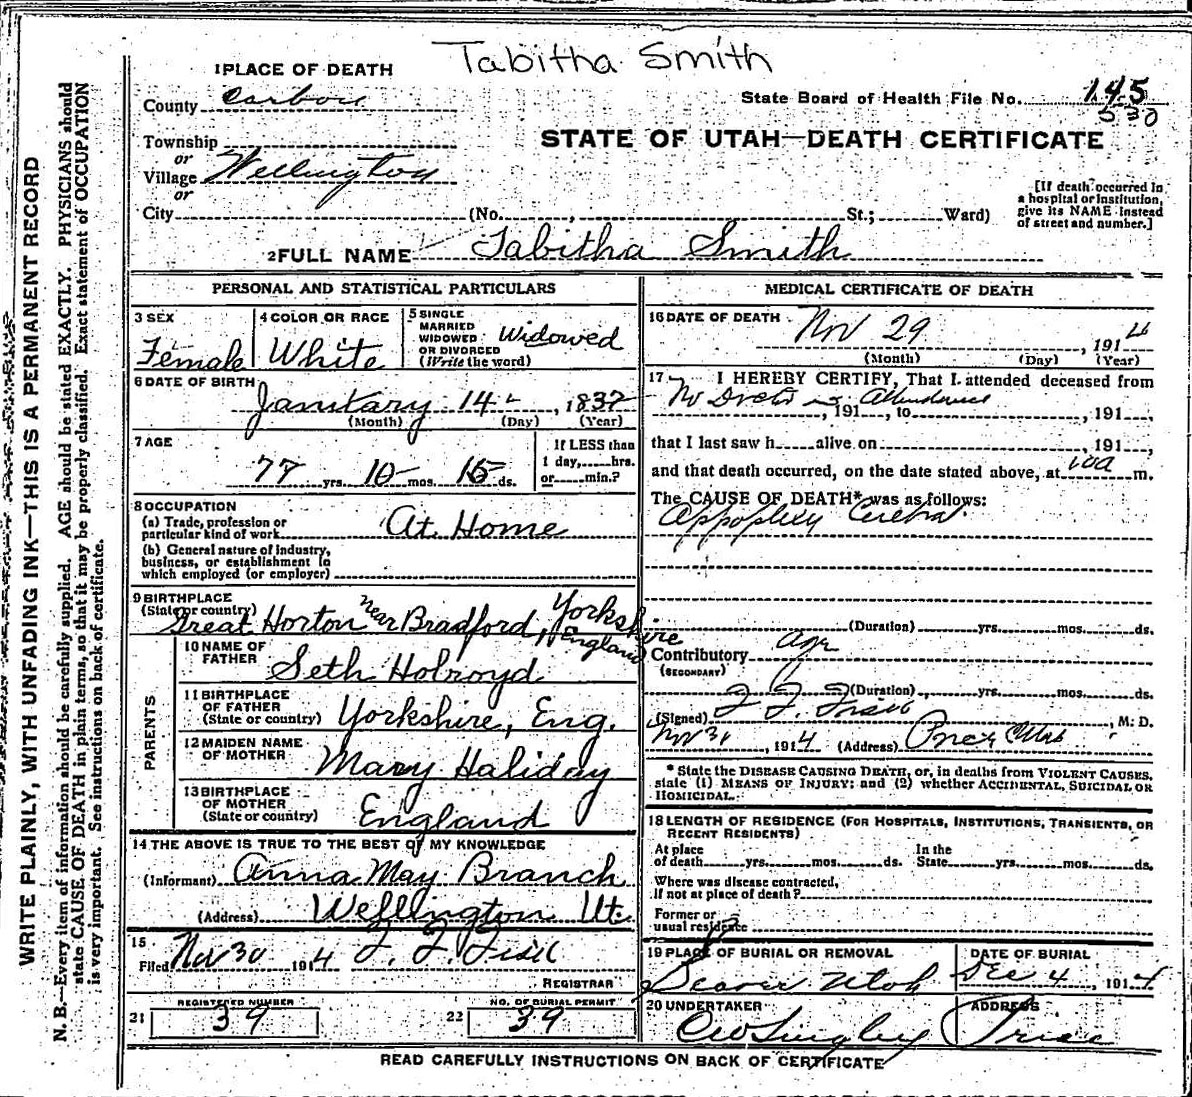 Tabitha Smith
1 PLACE OF DEATH
County Carbon
State Board of Health File No. 145
530
STATE OF UTAH—DEATH CERTIFICATE
Township
or
Village Wellington
or
City (No. , St.; Ward)
[If death occurred in
a hospital or institution,
give its NAME instead
of street and number.]
2 FULL NAME Tabitha Smith
PERSONAL AND STATISTICAL PARTICULARS
3 SEX
Female
4 COLOR OR RACE
White
5 SINGLE
MARRIED
WIDOWED
OR DIVORCED
(Write the word)
Widowed
6 DATE OF BIRTH
January 14 , 1837
(Month) (Day) (Year)
7 AGE
77 yrs. 10 mos. 15 ds.
If LESS than
1 day, hrs.
or min.?
8 OCCUPATION
(a) Trade, profession or
particular kind of work At Home
(b) General nature of industry,
business, or establishment in
which employed (or employer)
9 BIRTHPLACE
(State or country)
Great Horton near Bradford, Yorkshire
England
PARENTS
10 NAME OF
FATHER
Seth Holroyd
11 BIRTHPLACE
OF FATHER
(State or country) Yorkshire, Eng.
12 MAIDEN NAME
OF MOTHER
Mary Haliday
13 BIRTHPLACE
OF MOTHER
(State or country)
England
14 THE ABOVE IS TRUE TO THE BEST OF MY KNOWLEDGE
(Informant) Anna May Branch
(Address) Wellington Ut.
15
Filed Nov 30 1914
REGISTRAR
21 REGISTERED NUMBER
39
22 NO. OF BURIAL PERMIT
39
MEDICAL CERTIFICATE OF DEATH
16 DATE OF DEATH
Nov 29 , 1914
(Month) (Day) (Year)
17 I HEREBY CERTIFY, That I attended deceased from
No in Attendance , 191 , to , 191 ,
that I last saw h alive on , 191 ,
and that death occurred, on the date stated above, at m.
The CAUSE OF DEATH* was as follows:
Appoplexy Cerebral
(Duration) yrs. mos. ds.
Contributory Age
(SECONDARY)
(Duration) yrs. mos. ds.
(Signed) , M. D.
, 1914 (Address) Price Utah
* State the DISEASE CAUSING DEATH, or, in deaths from VIOLENT CAUSES,
state (1) MEANS OF INJURY; and (2) whether ACCIDENTAL, SUICIDAL OR
HOMICIDAL.
18 LENGTH OF RESIDENCE (FOR HOSPITALS, INSTITUTIONS, TRANSIENTS, OR
RECENT RESIDENTS)
At place
of death yrs. mos. ds.
In the
State yrs. mos. ds.
Where was disease contracted,
if not at place of death?
Former or
usual residence
19 PLACE OF BURIAL OR REMOVAL
Beaver Utah
DATE OF BURIAL
Dec 4 , 1914
20 UNDERTAKER
ADDRESS
Price
READ CAREFULLY INSTRUCTIONS ON BACK OF CERTIFICATE
WRITE PLAINLY, WITH UNFADING INK—THIS IS A PERMANENT RECORD
N. B.—Every item of information should be carefully supplied. AGE should be stated EXACTLY. PHYSICIANS should
state CAUSE OF DEATH in plain terms, so that it may be properly classified. Exact statement of OCCUPATION
is very important. See instructions on back of certificate.